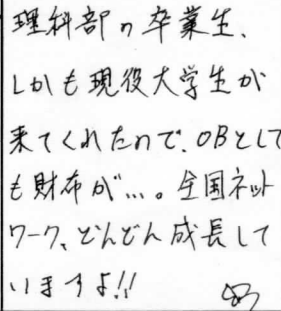 理科部の卒業生、
しかも現役大学生が
来てくれたので、OBとして
も財布が…。全国ネット
ワーク、どんどん成長して
いますよ!!